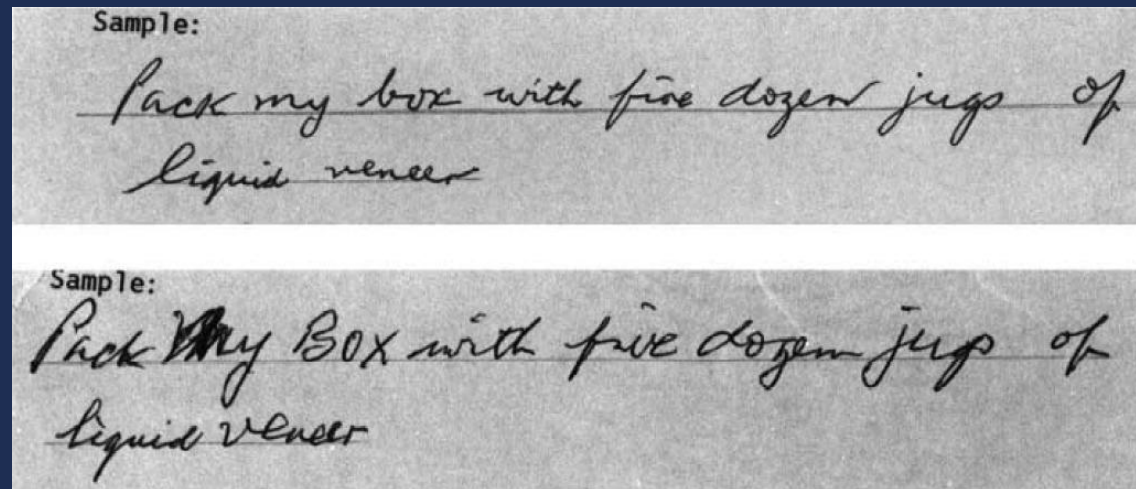 Sample:
Pack my box with five dozen jugs of
liquid veneer
Sample:
Pack My BOX with five dozen jugs of
liquid veneer